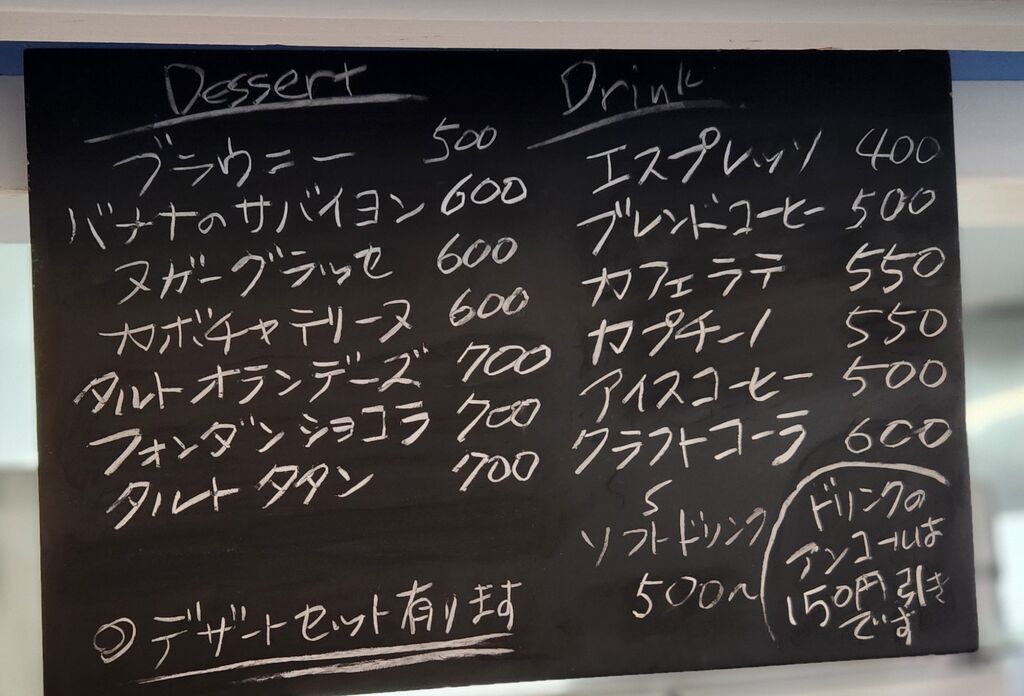 Dessert
ブラウニー 500
バナナのサバイヨン 600
ヌガーグラッセ 600
カボチャテリーヌ 600
タルトオランデーズ 700
フォンダンショコラ 700
タルトタタン 700
デザートセット有ります
Drink
エスプレッソ 400
ブレンドコーヒー 500
カフェラテ 550
カプチーノ 550
アイスコーヒー 500
クラフトコーラ 600
ソフトドリンク
500〜
ドリンクの
アンコールは
150円引き
です